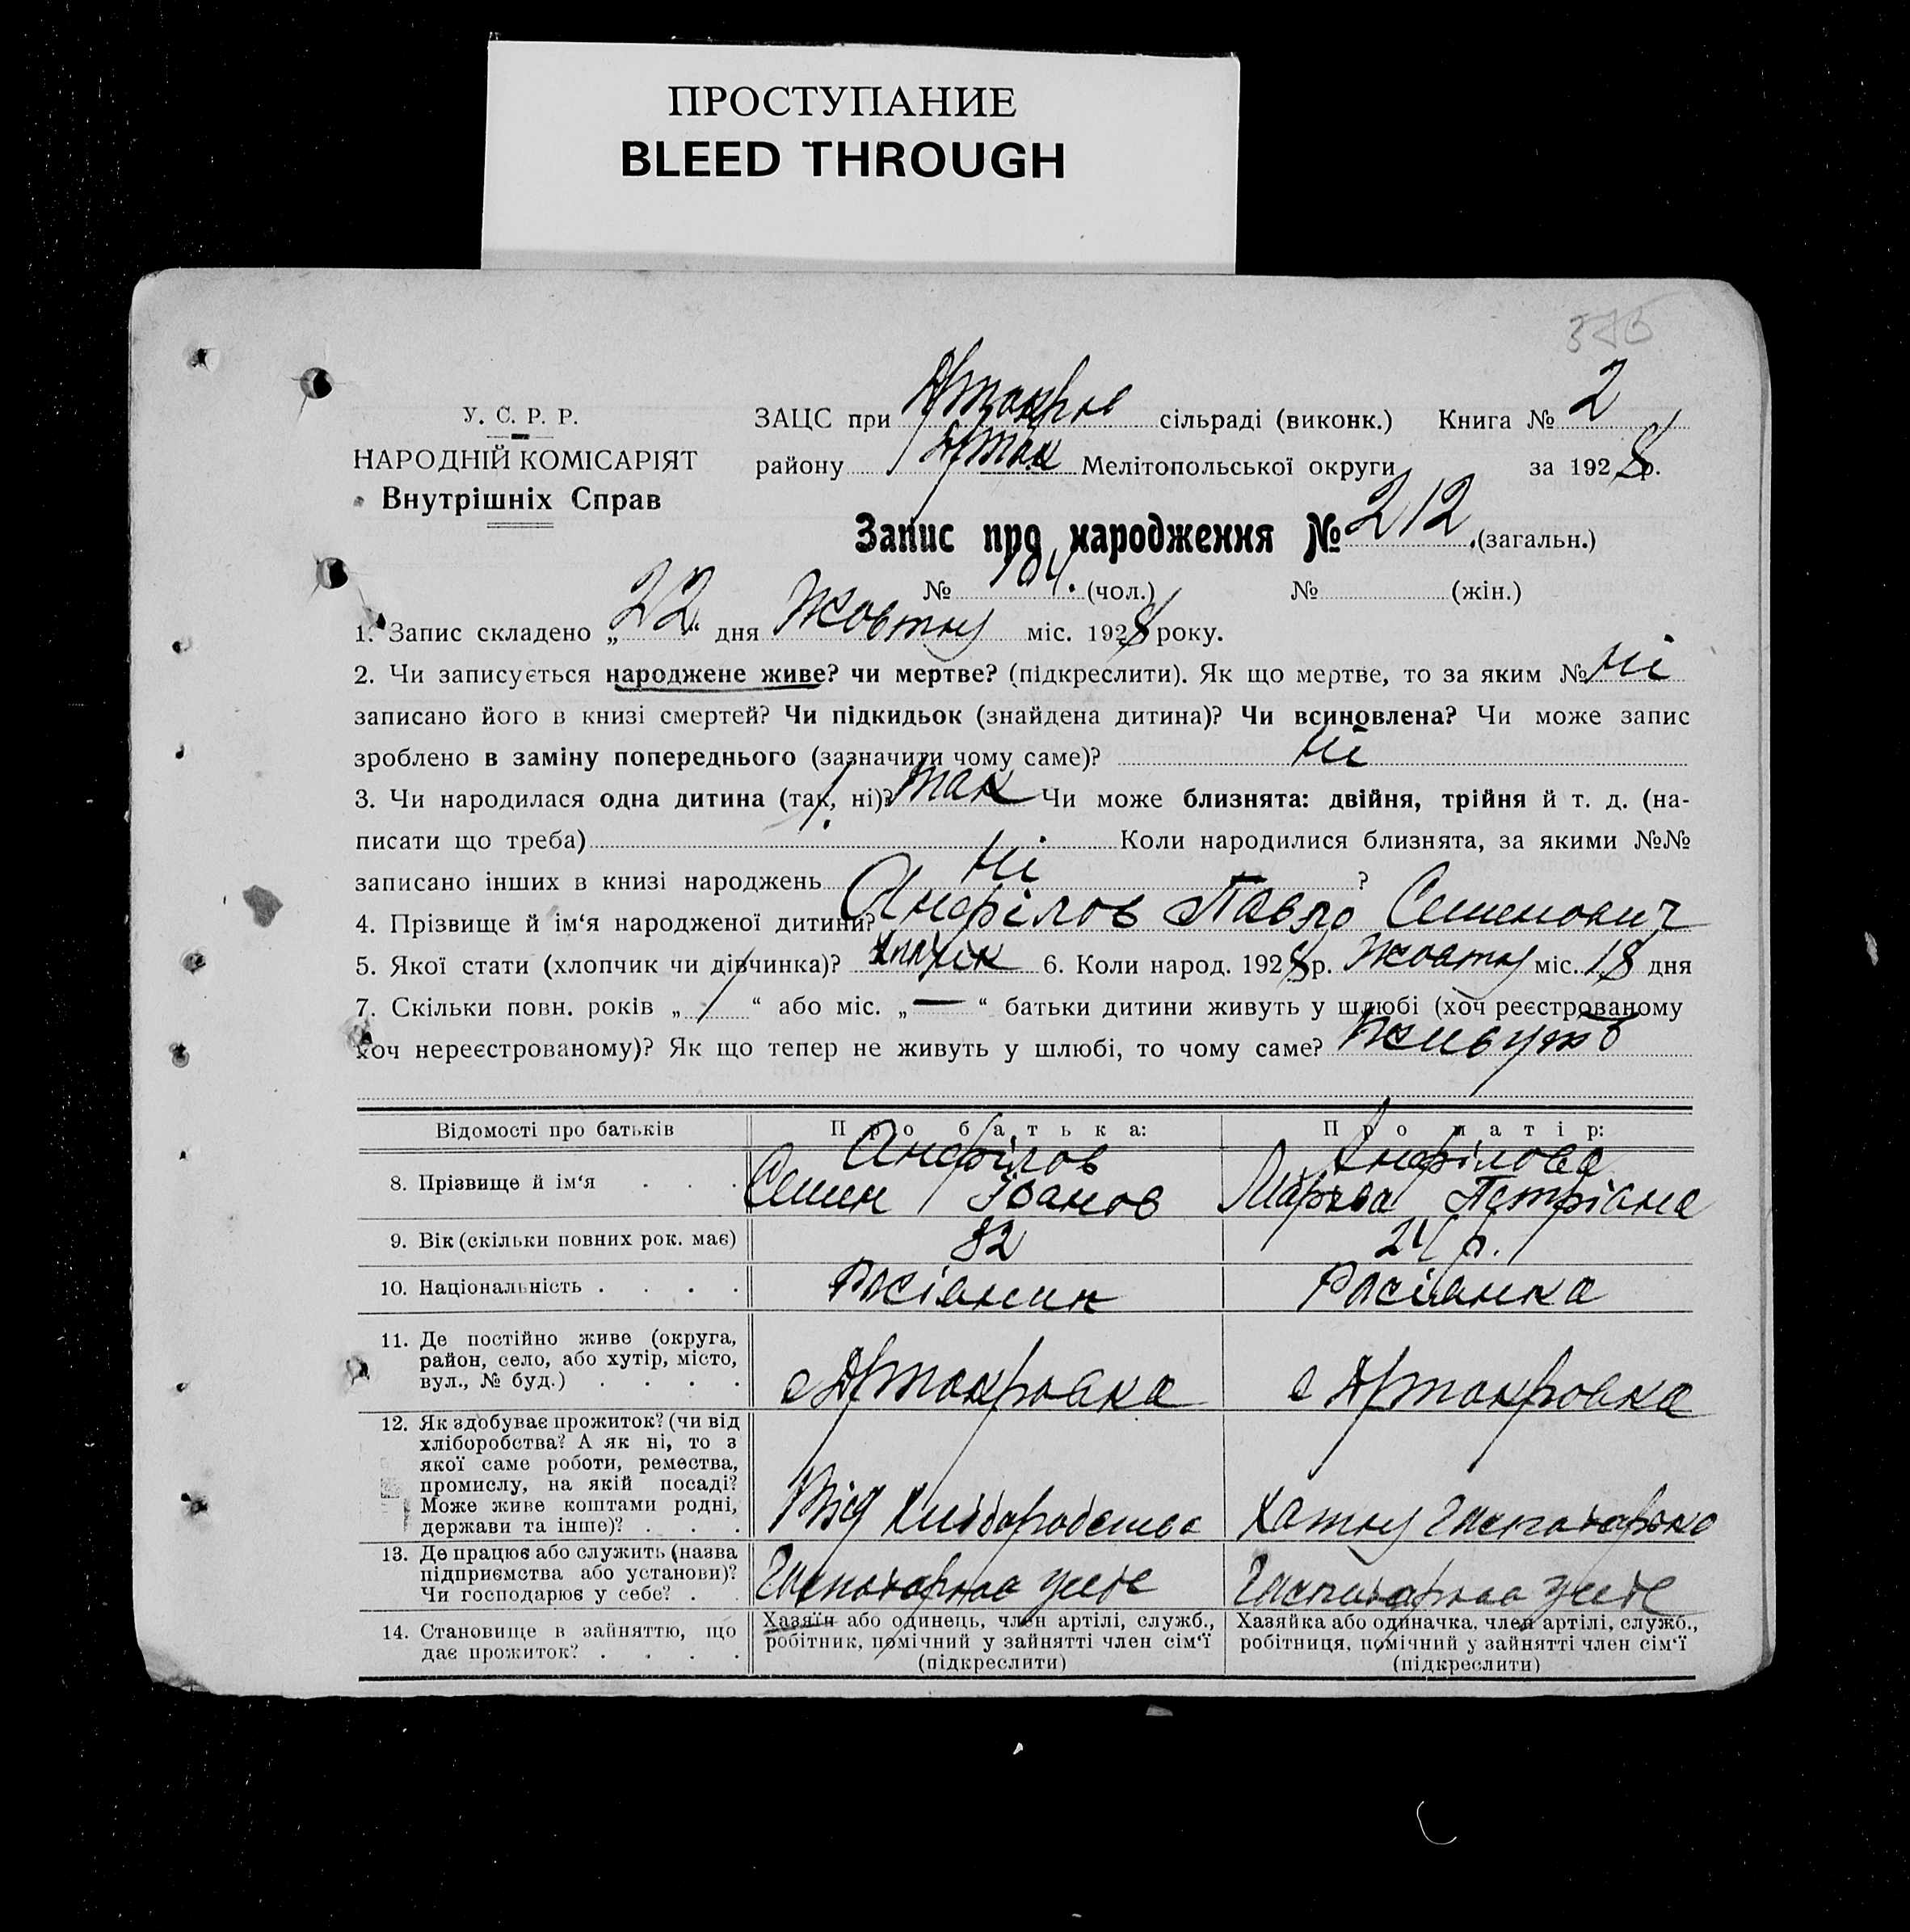 ПРОСТУПАНИЕ
BLEED THROUGH
У. С. Р. Р.
НАРОДНІЙ КОМІСАРІЯТ
Внутрішніх Справ
ЗАЦС при сільраді (виконк.) Книга № 2
району Мелітопольської округи за 1928 р.
Запис про народження № 212. (загальн.)
№ 104. (чол.) № (жін.)
1. Запис складено „22“ дня Жовтня міс. 1928 року.
2. Чи записується народжене живе? чи мертве? (підкреслити). Як що мертве, то за яким № Ні
записано його в книзі смертей? Чи підкидьок (знайдена дитина)? Чи всиновлена? Чи може запис
зроблено в заміну попереднього (зазначити чому саме)? Ні
3. Чи народилася одна дитина (так, ні)? Так Чи може близнята: двійня, трійня й т. д. (на-
писати що треба) Коли народилися близнята, за якими №№
записано інших в книзі народжень Ні ?
4. Прізвище й ім‘я народженої дитини? Анфілов Павло Семенович
5. Якої стати (хлопчик чи дівчинка)? 6. Коли народ. 1928 р. Жовтня міс. 18 дня
7. Скільки повн. років „1“ або міс. „—“ батьки дитини живуть у шлюбі (хоч реєстрованому
хоч нереєстрованому)? Як що тепер не живуть у шлюбі, то чому саме? Живуть
Відомості про батьків Про батька: Про матір:
Анфілов Анфілова
8. Прізвище й ім‘я . . . Семен Іванов Петрівна
9. Вік (скільки повних рок. має)
10. Національність . . . . Росіянин Росіянка
11. Де постійно живе (округа,
район, село, або хутір, місто,
вул., № буд.) . . . .
12. Як здобуває прожиток? (чи від
хліборобства? А як ні, то з
якої саме роботи, ремества,
промислу, на якій посаді?
Може живе коштами родні,
держави та інше)? . . . Від Хліборобства Хатня
13. Де працює або служить (назва
підприємства або установи)?
Чи господарює у себе? . .
14. Становище в зайняттю, що
дає прожиток? . . . .
Хазяїн або одинець, член артілі, служб.,
робітник, помічний у зайнятті член сім‘ї
(підкреслити)
Хазяйка або одиначка, член артілі, служб.,
робітниця, помічний у зайнятті член сім‘ї
(підкреслити)